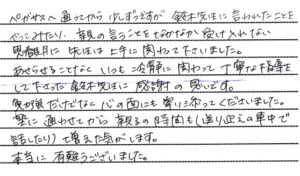 ペガサスへ通ってから少しずつですが鈴木先生に言われたことを
やってみたり、親の言うことをなかなか受け入れない
思春期に先生は上手に関わって下さいました。
あせらせることなくいつも冷静に関わって丁寧な指導を
して下さった鈴木先生に感謝の思いです。
勉強だけでなく心の面にも寄り添ってくださいました。
塾に通わせてから親子の時間も(送り迎えの車中で
話したり)増えた気がします。
本当に有難うございました。